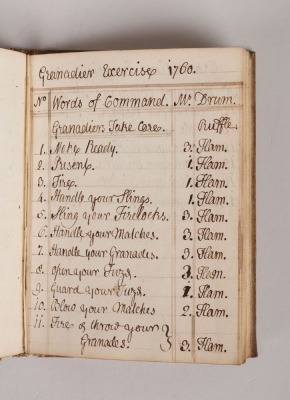 Granadier Exercise 1760.
No Words of Command. Mo. Drum.
Granadiers Take Care. Ruffle.
1. Make Ready. 3. Flam.
2. Present. 1. Flam.
3. Fire. 1. Flam.
4. Handle your Slings. 1. Flam.
5. Sling your Firelocks. 3. Flam.
6. Handle your Matches. 3. Flam.
7. Handle your Granades. 3. Flam.
8. Open your Fuzs. 3. Flam.
9. Guard your Fuzs. 1. Flam.
10. Blow your Matches 2. Flam.
11. Fire & throw your
Granades. 3. Flam.